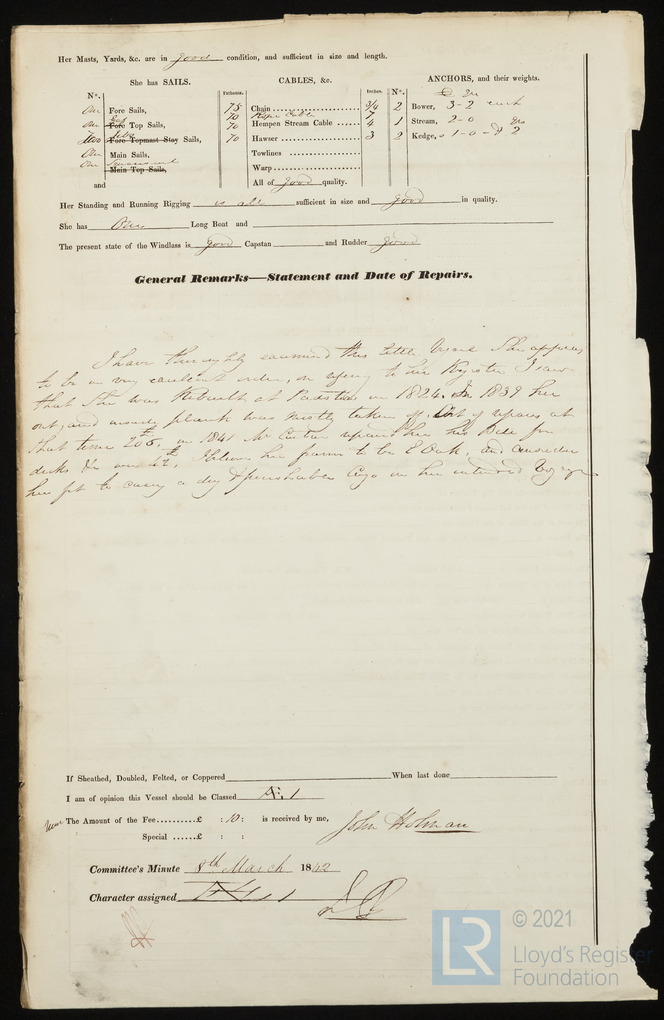 Her Masts, Yards, &c. are in good condition, and sufficient in size and length.
She has SAILS.
CABLES, &c.
ANCHORS, and their weights.
N°.
Fathoms.
Inches.
N°.
One Fore Sails,
75
Chain
3/4
2
Bower, 3-2 each
One Fore Top Sails,
70
Rope Cable
7
70
Hempen Stream Cable
4
1
Stream, 2-0
Two Fore Topmast Stay Sails,
70
Hawser
3
2
Kedge, 1-0-
One Main Sails,
Towlines
One Main Top Sails,
Warp
and
All of good quality.
Her Standing and Running Rigging is all sufficient in size and good in quality.
She has One Long Boat and
The present state of the Windlass is good Capstan and Rudder good
General Remarks—Statement and Date of Repairs.
I have thoroughly examined this little Vessel She appears
to be in very excellent order, on refering to her Register I saw
that She was Rebuilt at Padstow in 1824. In 1839 her
out, and inside plank was mostly taken off, Cost of repairs at
that time in 1841 Mr repaired her his Bill for
decks & I believe her frame to be E Oak, and consider
her fit to carry a dry & perishable Cargo on her intended Voyage
If Sheathed, Doubled, Felted, or Coppered When last done
I am of opinion this Vessel should be Classed
The Amount of the Fee £ : 10 : is received by me,
John Holman
Special £ : :
Committee's Minute 8th March 1842
Character assigned
LR
© 2021
Lloyd's Register
Foundation